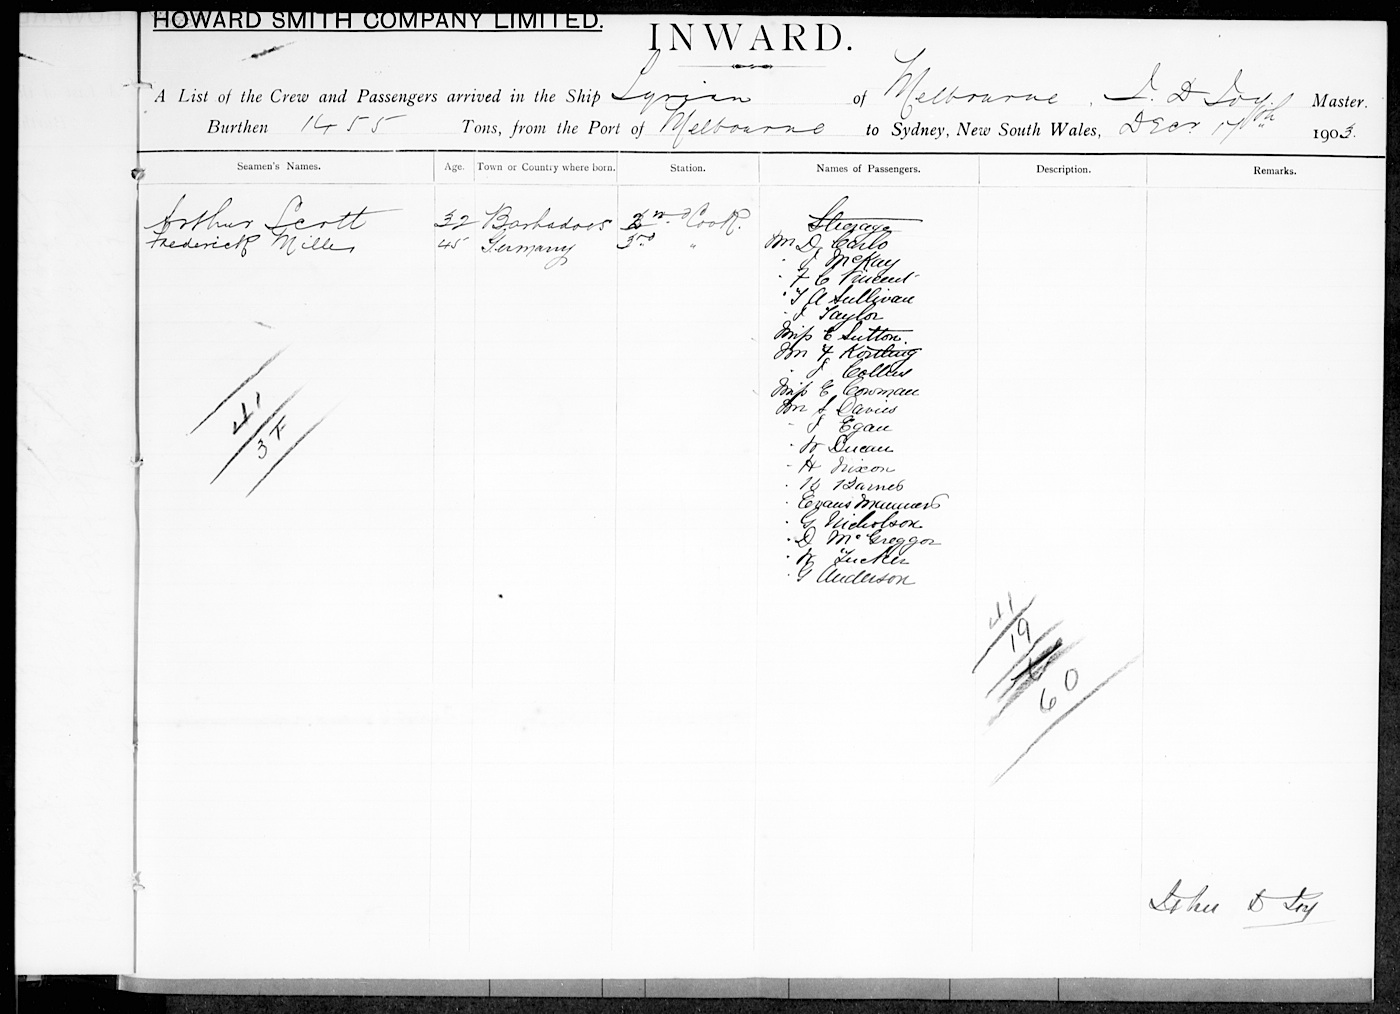 HOWARD SMITH COMPANY LIMITED.
INWARD.
A List of the Crew and Passengers arrived in the Ship Syrian of Melbourne, J. D Joy. Master.
Burthen 1455 Tons, from the Port of Melbourne to Sydney, New South Wales, Decr 17th 1903.
Seamen's Names. Age. Town or Country where born. Station. Names of Passengers. Description. Remarks.
Arthur Scott 32 Barbadoes 2nd Cook.
Frederick Miller 45 Germany 3rd "
Steerage
Mr D, Carlo
" J McKay
" F C Vincent
" T A Sullivan
" J Taylor
Miss E Sutton.
Mr F Kortling
" J Collins
Miss E Cowman
Mr S Davies
" J Egan
" W Ducan
" H Nixon
" W Barnes
" Evans
" G Nicholson
" D McGreggor
" W Tucker
" G Anderson
41
3 F
41
19
60
John D Joy